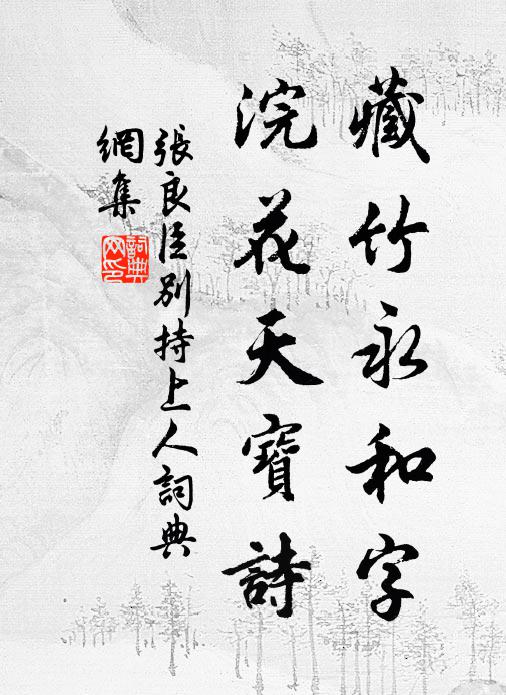 藏竹永和字
浣花天寶詩
張良臣別持上人詞典
網集
詞典
网印